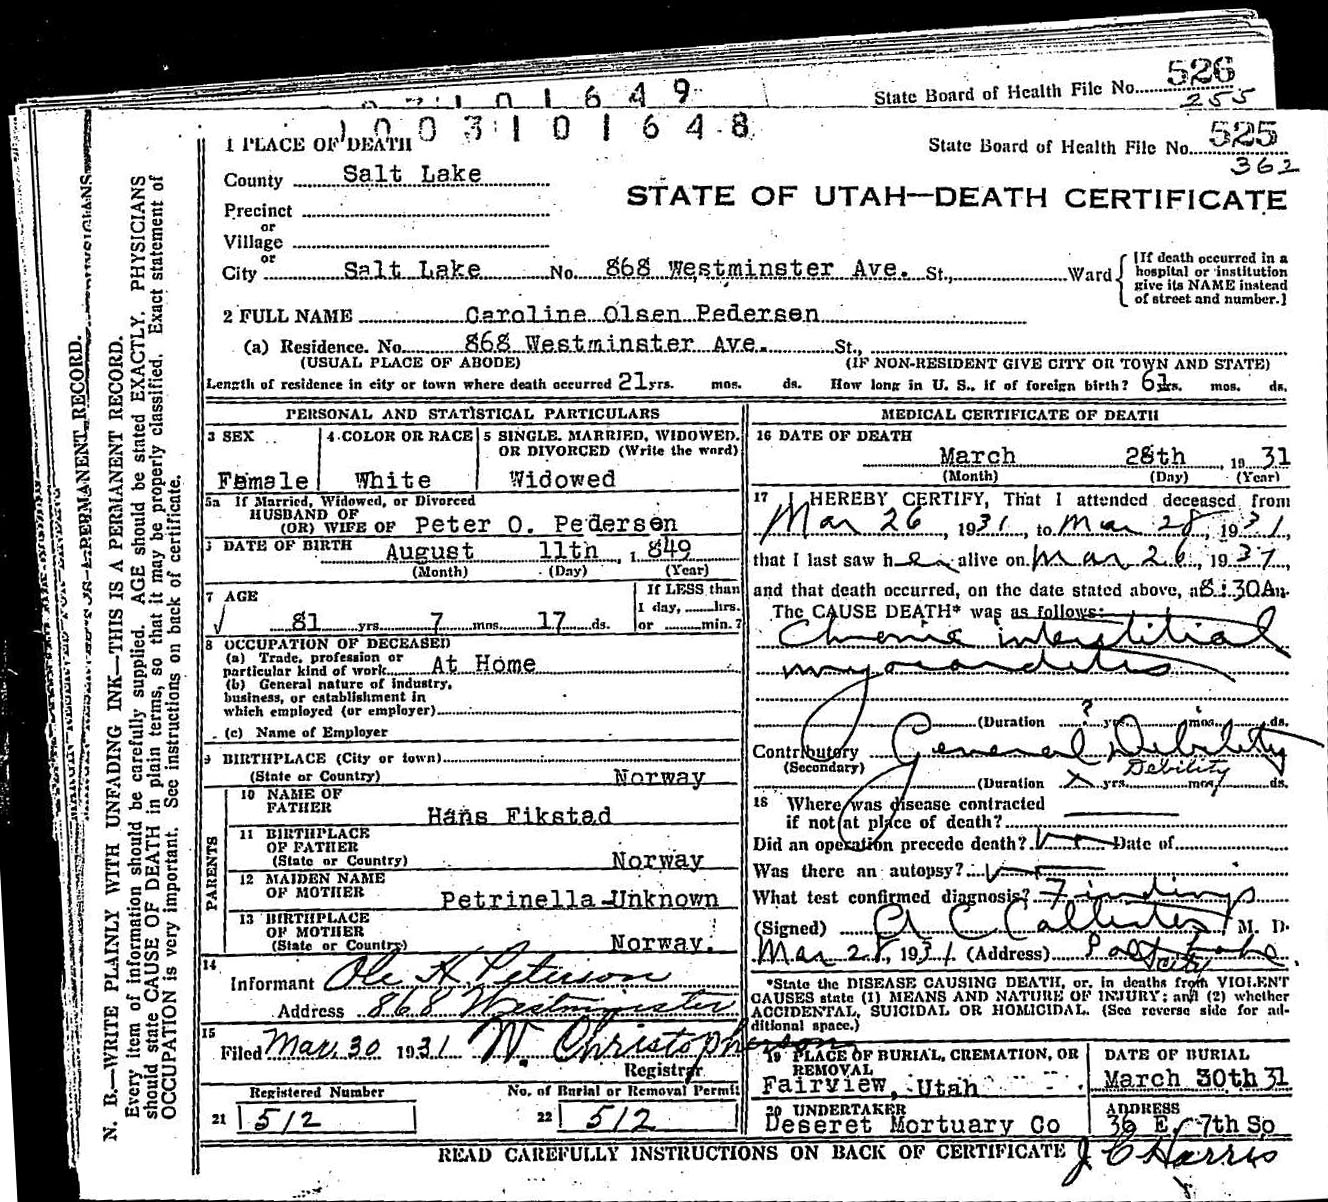 State Board of Health File No. 526
255
1649
1003101648
State Board of Health File No. 525
362
1 PLACE OF DEATH
County Salt Lake
STATE OF UTAH—DEATH CERTIFICATE
Precinct
or
Village
or
City Salt Lake No. 868 Westminster Ave. St., Ward
[If death occurred in a hospital or institution give its NAME instead of street and number.]
2 FULL NAME Caroline Olsen Pedersen
(a) Residence. No. 868 Westminster Ave. St.,
(USUAL PLACE OF ABODE) (IF NON-RESIDENT GIVE CITY OR TOWN AND STATE)
Length of residence in city or town where death occurred 21 yrs. mos. ds. How long in U. S., if of foreign birth? 61 yrs. mos. ds.
PERSONAL AND STATISTICAL PARTICULARS
3 SEX
Female
4 COLOR OR RACE
White
5 SINGLE, MARRIED, WIDOWED, OR DIVORCED (Write the word)
Widowed
5a If Married, Widowed, or Divorced
HUSBAND OF
(OR) WIFE OF Peter O. Pedersen
DATE OF BIRTH August 11th, 1849
(Month) (Day) (Year)
7 AGE
81 yrs 7 mos 17 ds.
If LESS than
1 day, hrs.
or min.?
8 OCCUPATION OF DECEASED
(a) Trade, profession or
particular kind of work At Home
(b) General nature of industry,
business, or establishment in
which employed (or employer)
(c) Name of Employer
9 BIRTHPLACE (City or town)
(State or Country) Norway
PARENTS
10 NAME OF
FATHER Hans Fikstad
11 BIRTHPLACE
OF FATHER
(State or Country) Norway
12 MAIDEN NAME
OF MOTHER Petrinella Unknown
13 BIRTHPLACE
OF MOTHER
(State or Country) Norway.
14
Informant Ole H. Peterson
Address 868 Westminster
15
Filed Mar. 30 1931 W. Christopherson
Registrar
Registered Number
21 512
No. of Burial or Removal Permit
22 512
MEDICAL CERTIFICATE OF DEATH
16 DATE OF DEATH
March 28th, 1931
(Month) (Day) (Year)
17 I HEREBY CERTIFY, That I attended deceased from
Mar 26, 1931, to Mar 28, 1931,
that I last saw her alive on Mar 26, 1931,
and that death occurred, on the date stated above, at 8:30A m.
The CAUSE DEATH* was as follows:
Chronic interstitial
myocarditis
(Duration ? yrs. mos. ds.
Contributory General Debility
(Secondary) Debility
(Duration yrs. mos. ds.
18 Where was disease contracted
if not at place of death?
Did an operation precede death? Date of
Was there an autopsy?
What test confirmed diagnosis? Findings
(Signed) A C Callister M. D.
Mar 28, 1931. (Address) Salt Lake
City
*State the DISEASE CAUSING DEATH, or, in deaths from VIOLENT
CAUSES state (1) MEANS AND NATURE OF INJURY; and (2) whether
ACCIDENTAL, SUICIDAL OR HOMICIDAL. (See reverse side for ad-
ditional space.)
19 PLACE OF BURIAL, CREMATION, OR
REMOVAL
Fairview, Utah
DATE OF BURIAL
March 30th 31
20 UNDERTAKER
Deseret Mortuary Co
ADDRESS
36 E. 7th So
READ CAREFULLY INSTRUCTIONS ON BACK OF CERTIFICATE J C Harris
N. B.—WRITE PLAINLY WITH UNFADING INK—THIS IS A PERMANENT RECORD.
Every item of information should be carefully supplied. AGE should be stated EXACTLY. PHYSICIANS
should state CAUSE OF DEATH in plain terms, so that it may be properly classified. Exact statement of
OCCUPATION is very important. See instructions on back of certificate.